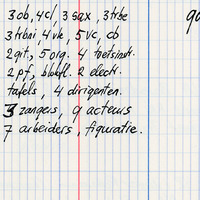 3 ob, 4 cl, 3 sax, 3 trbe
3 trbni, 4 vle, 5 vc, cb
2 git., 5 org. 4 toetsinstr.
2 pf, blokfl. 2 electr.
tafels, 4 dirigenten.
3 zangers, 9 acteurs
7 arbeiders, figuratie.